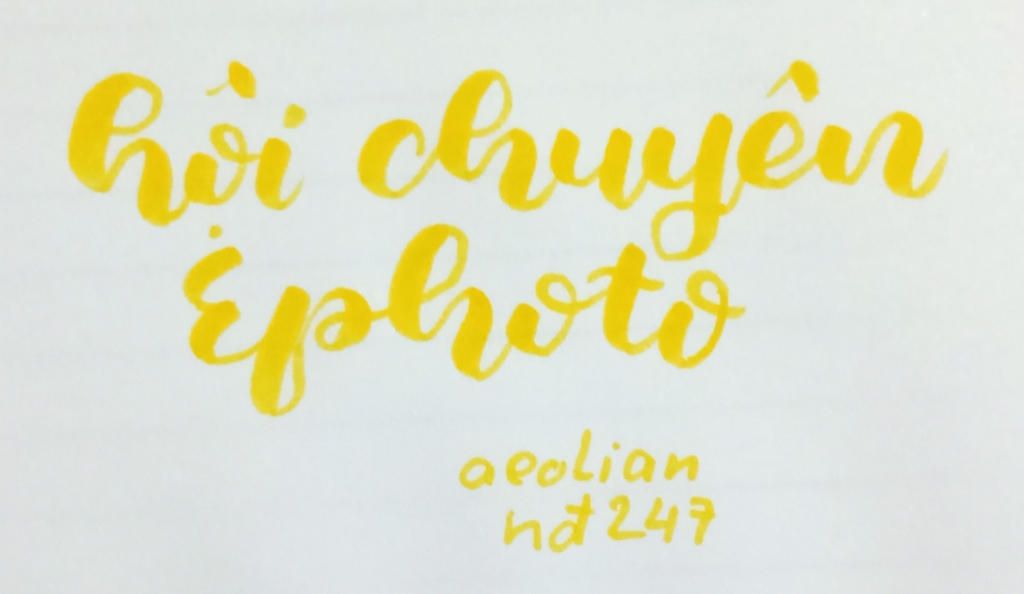 hội chuyên
Ephoto
aeolian
nđ247